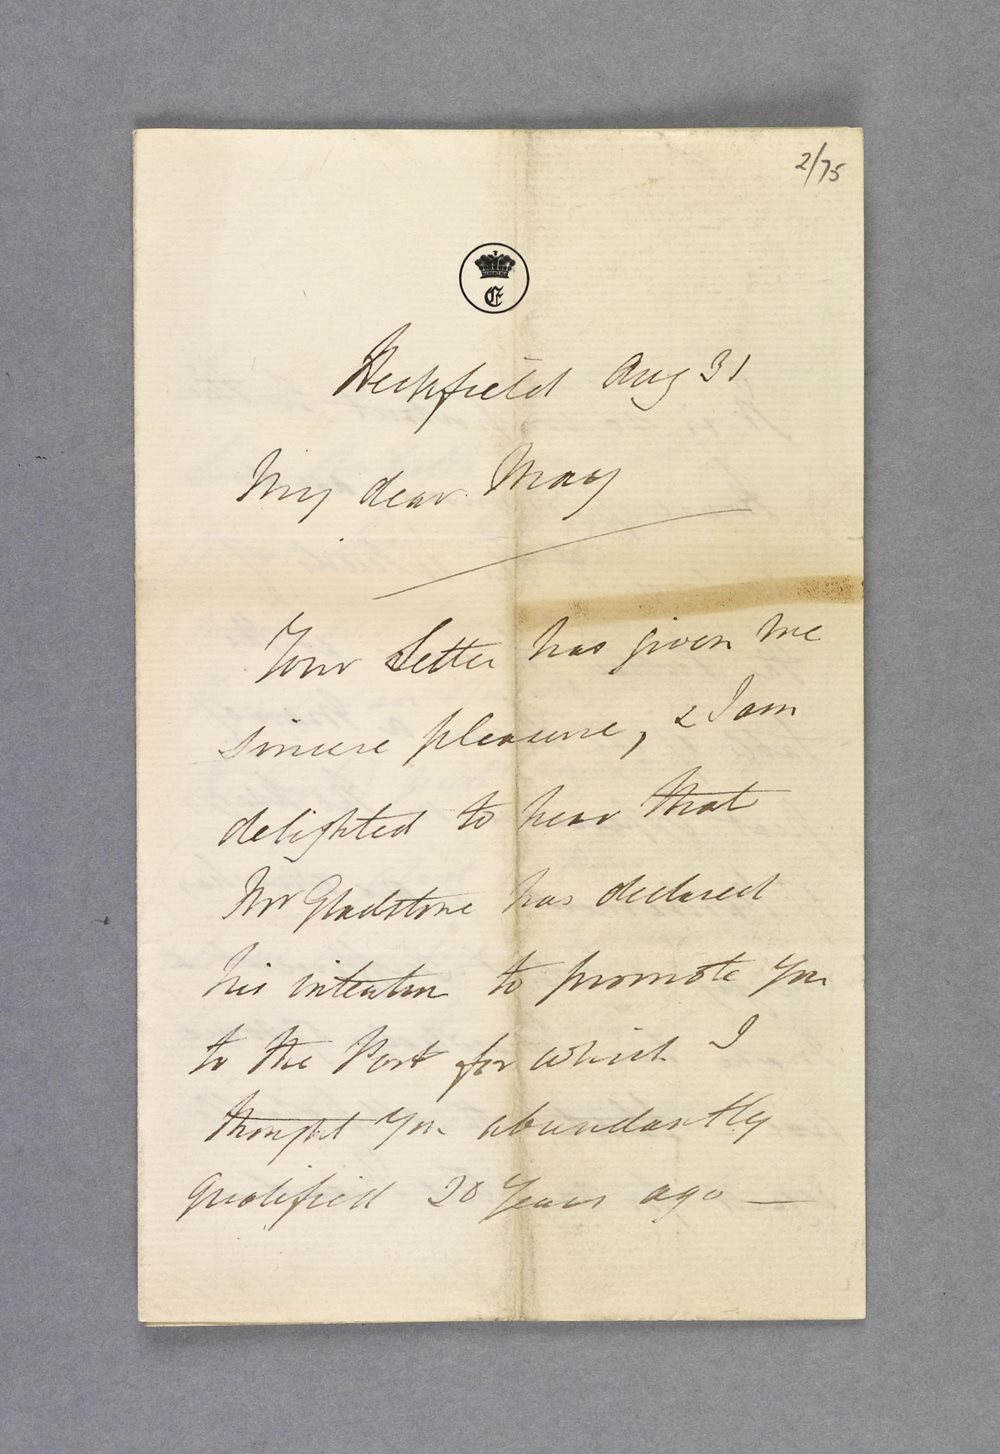 2/75
E
Heckfield Aug 31
My dear May
Your Letter has given me
sincere pleasure, & I am
delighted to hear that
Mr Gladstone has declared
his intention to promote you
to the Post for which I
thought you abundantly
qualified 20 Years ago —